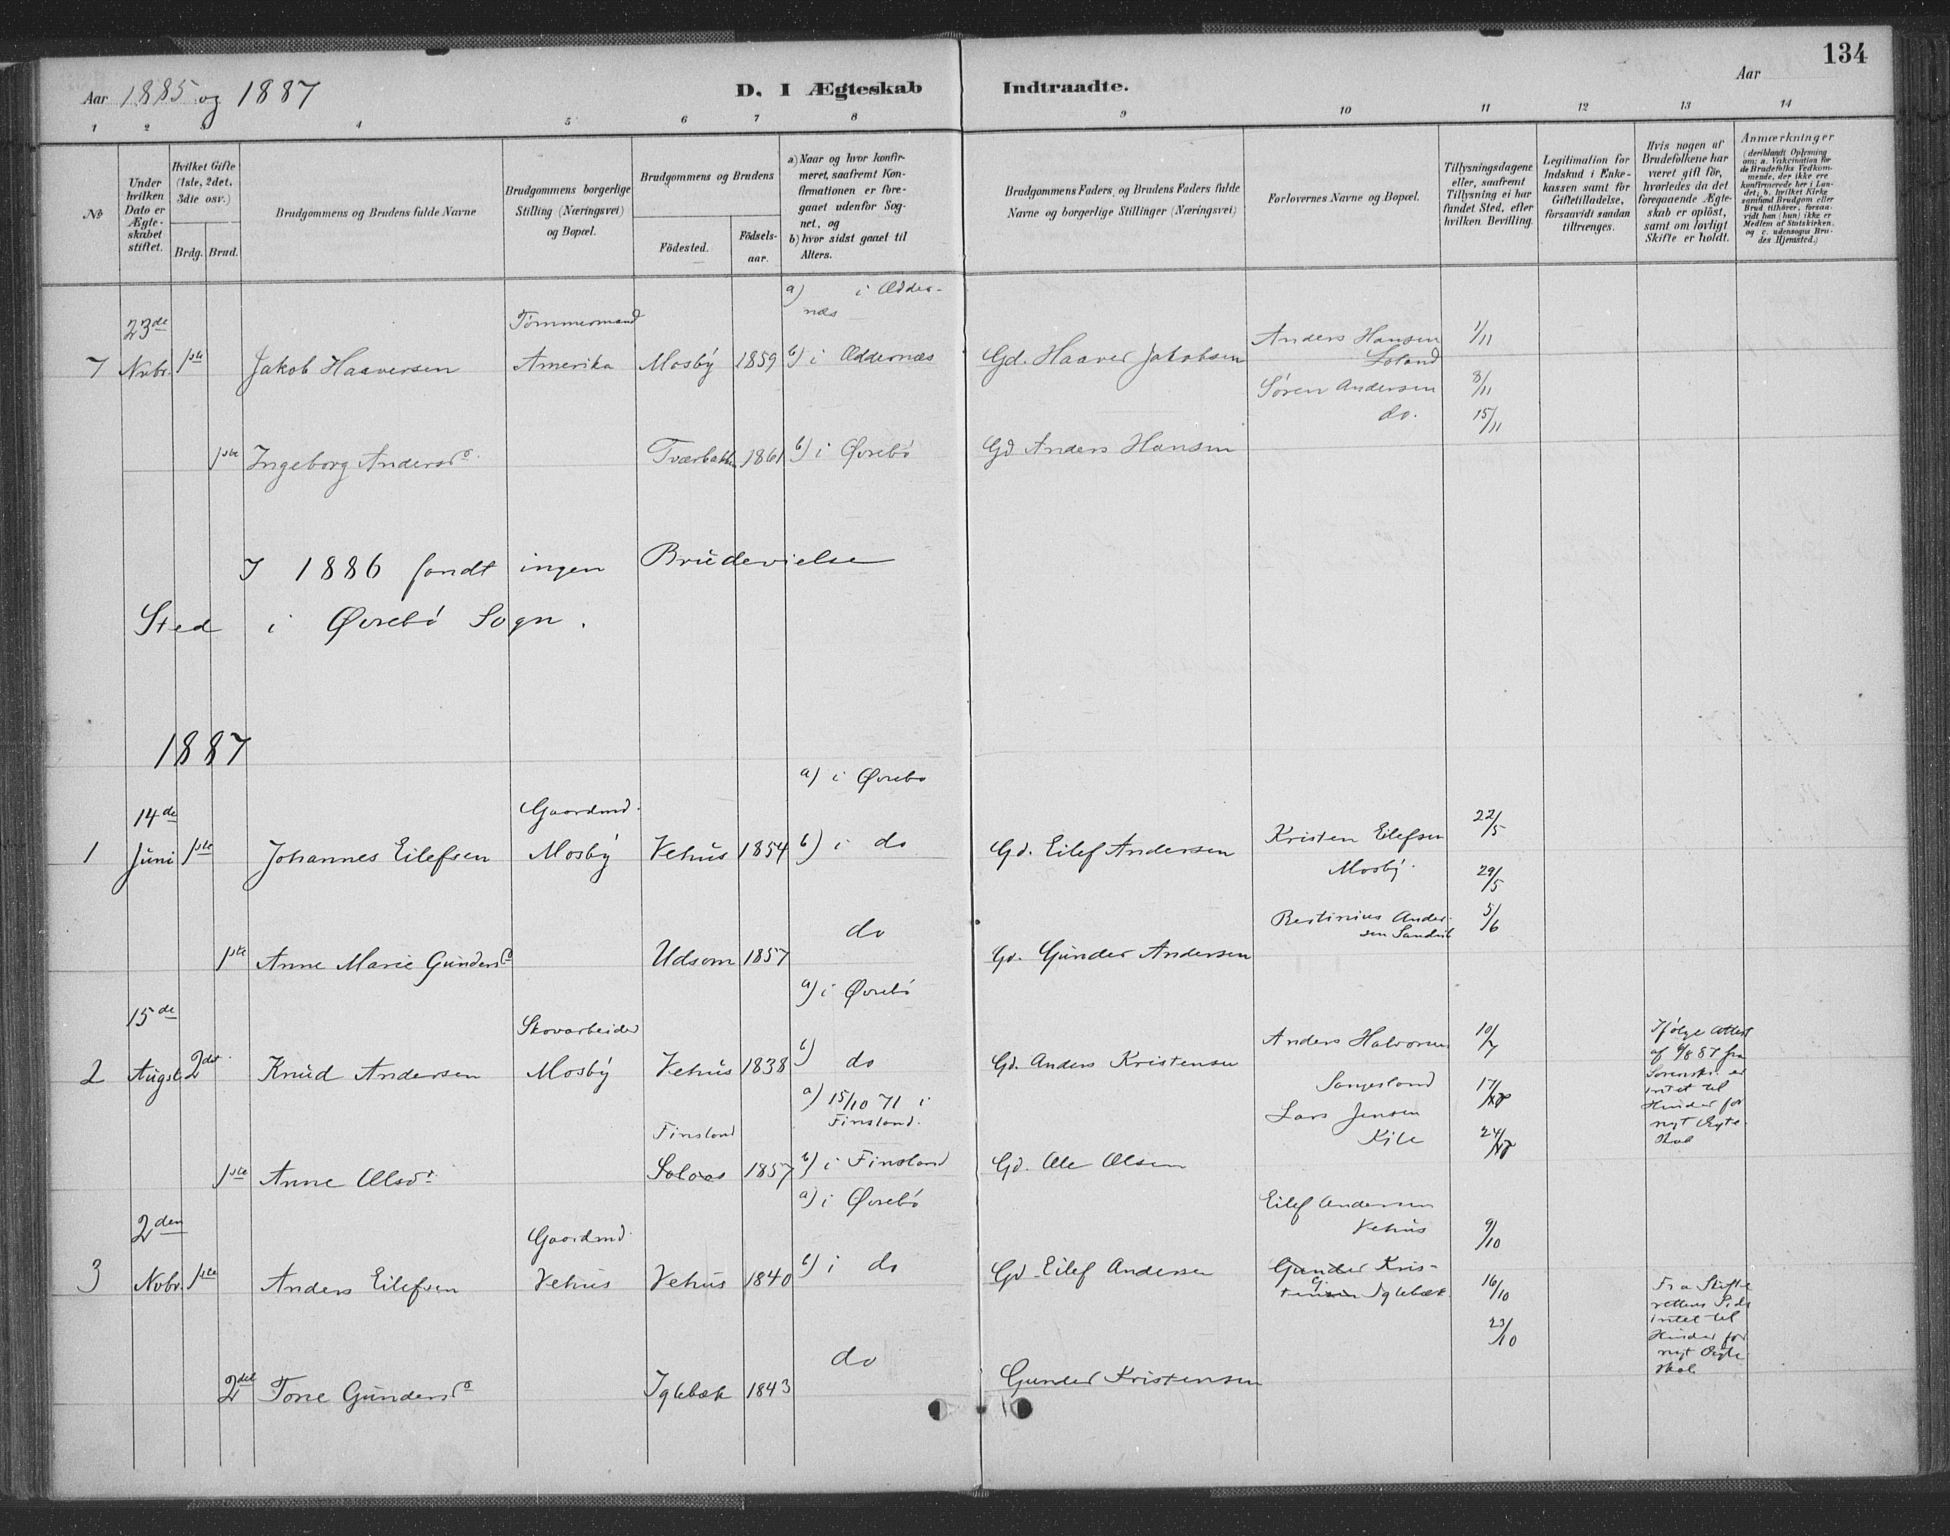 134
Aar 1885 og 1887
D. I Ægteskab Indtraadte.
Aar
1 2 3 4 5 6 7 8 9 10 11 12 13 14
No
Under hvilken Dato er Ægteskabet stiftet.
Hvilket Gifte (1ste, 2det, 3die osv.)
Brdg. Brud.
Brudgommens og Brudens fulde Navne
Brudgommens borgerlige Stilling (Næringsvei) og Bopæl.
Brudgommens og Brudens
Födested.
Födselsaar.
a) Naar og hvor konfirmeret, saafremt Konfirmationen er foregaaet udenfor Sognet, og
b) hvor sidst gaaet til Alters.
Brudgommens Faders, og Brudens Faders fulde Navne og borgerlige Stillinger (Næringsvei)
Forlovernes Navne og Bopæl.
Tillysningsdagene eller, saafremt Tillysning ei har fundet Sted, efter hvilken Bevilling.
Legitimation for Indskud i Enkekassen samt for Giftetilladelse, forsaavidt saadan tiltrænges.
Hvis nogen af Brudefolkene har været gift för, hvorledes da det foregaaende Ægteskab er oplöst, samt om lovligt Skifte er holdt.
Anmærkninger
(deriblandt Oplysning om: a. Vakcination for de Brudefolks Vedkommende, der ikke ere konfirmerede her i Landet; b. hvilket Kirkesamfund Brudgom eller Brud tilhörer, forsaavidt han (hun) ikke er Medlem af Statskirken, og c. udensogns Brudes Hjemsted.)
a) i Odder-
næs
23de Tömmermand
7 Novbr. 1ste Jakob Haaversen Amerika Mosby 1859 b) i Oddernæs Gd. Haaver Jakobsen
Anders Hansen Loland 1/11
Sören Andersen 8/11
do. 15/11
1ste Ingeborg Andersd. Tværbakken 1861 b) i Øvrebö Gd Anders Hansen
I 1886 fandt ingen Brudevielse
Sted i Øvrebö Sogn.
1887
a) i Øvrebo
14de Gaardmd.
1 Juni 1ste Johannes Eilefsen Mosby Vehus 1854 b) i do Gd. Eilef Andersen
Kristen Eilefsen 22/5
Mosby. 29/5
Bestinius Ander- 5/6
sen Sandvik
do
1ste Anne Marie Gundersd Udsom 1857 Gd. Gunder Andersen
a) i Øvrebö
15de Skovarbeider
2 Augst. 2det Knud Andersen Mosby Vehus 1838 b) do Gd. Anders Kristensen
Anders Halvorsen 10/7
Sangesland 17/7
Lars Jensen
Kile 24/7
Ifölge Attest
af 6/8 87 fra
Sorenskr. er
intet til
Hinder for
nyt Ægte-
skab
a) 15/10 71 i
Finsland.
Finsland
1ste Anne Olsd. 1857 b) i Finsland Gd. Ole Olsen
a) i Øvrebö
2den Gaardmd.
3 Novbr. 1ste Anders Eilefsen Vehus Vehus 1840 b) i do Gd. Eilef Andersen
Eilef Andersen
Vehus 9/10
Gunder Kris-
Iglebæk. 16/10
23/10
Fra Skifte
rettens Side
intet til
Hinder for
nyt Ægte
skab
do
2det Tone Gundersd Iglebæk 1843 Gunder Kristensen